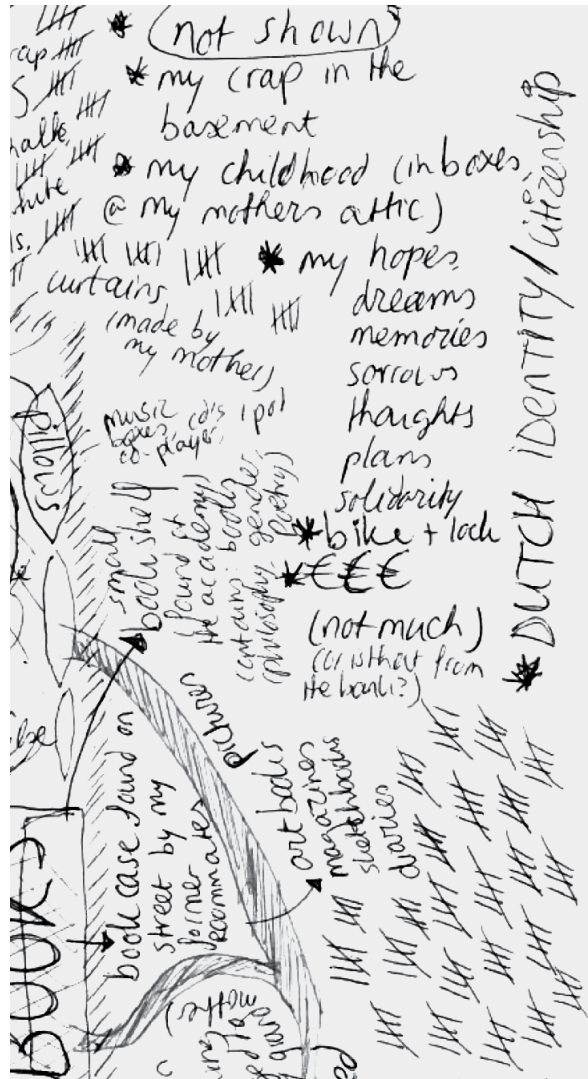 (not shown)
* my crap in the
basement
* my childhood (in boxes
@ my mothers attic)
* my hopes
dreams
memories
sorrows
thoughts
plans
solidarity
* bike + lock
* €€€
(not much)
(or is that from
the bank?)
* DUTCH IDENTITY/CITIZENSHIP
curtains
(made by
my mother)
music
boxes, cd's ipod
cd-player
pillows
small
book shelf
found at
the academy
(contains: books
philosophy, gender,
poetry)
pictures
art books
magazines
sketchbooks
diaries
book case found on
street by my
former
roommates
BOOKS